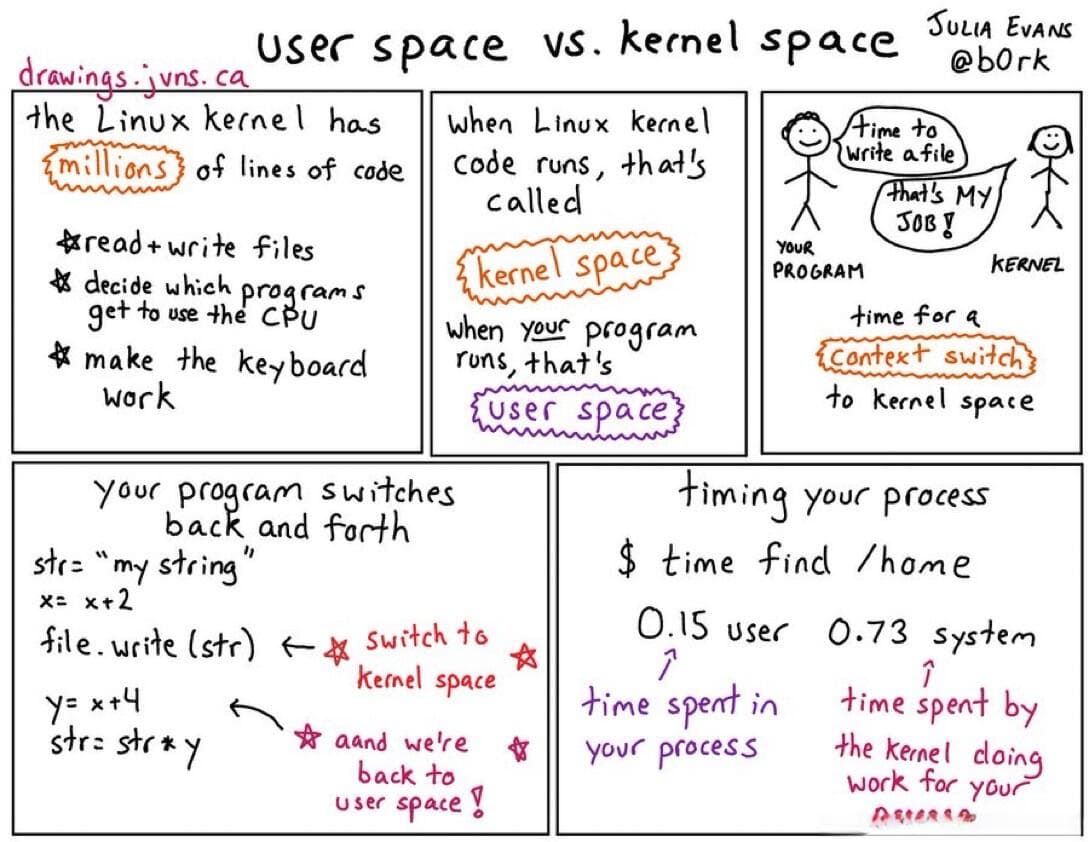 user space vs. kernel space
JULIA EVANS
@b0rk
drawings.jvns.ca
the Linux kernel has
millions of lines of code
read + write files
decide which programs
get to use the CPU
make the keyboard
work
when Linux kernel
code runs, that's
called
kernel space
when your program
runs, that's
user space
time to
write a file
that's MY
JOB!
YOUR
PROGRAM
KERNEL
time for a
context switch
to kernel space
your program switches
back and forth
str= "my string"
x= x+2
file.write (str) ← switch to
kernel space
y= x+4
str= str * y
aand we're
back to
user space!
timing your process
$ time find /home
0.15 user 0.73 system
time spent in
your process
time spent by
the kernel doing
work for your